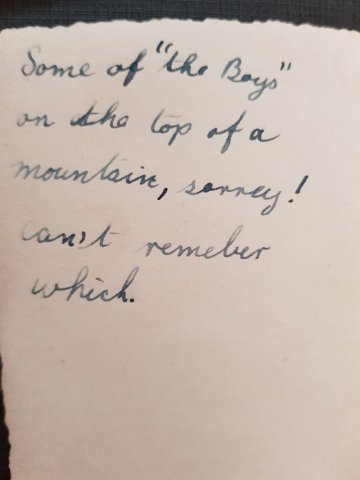 Some of "the Boys"
on the top of a
mountain, sorrey!
can't remeber
which.